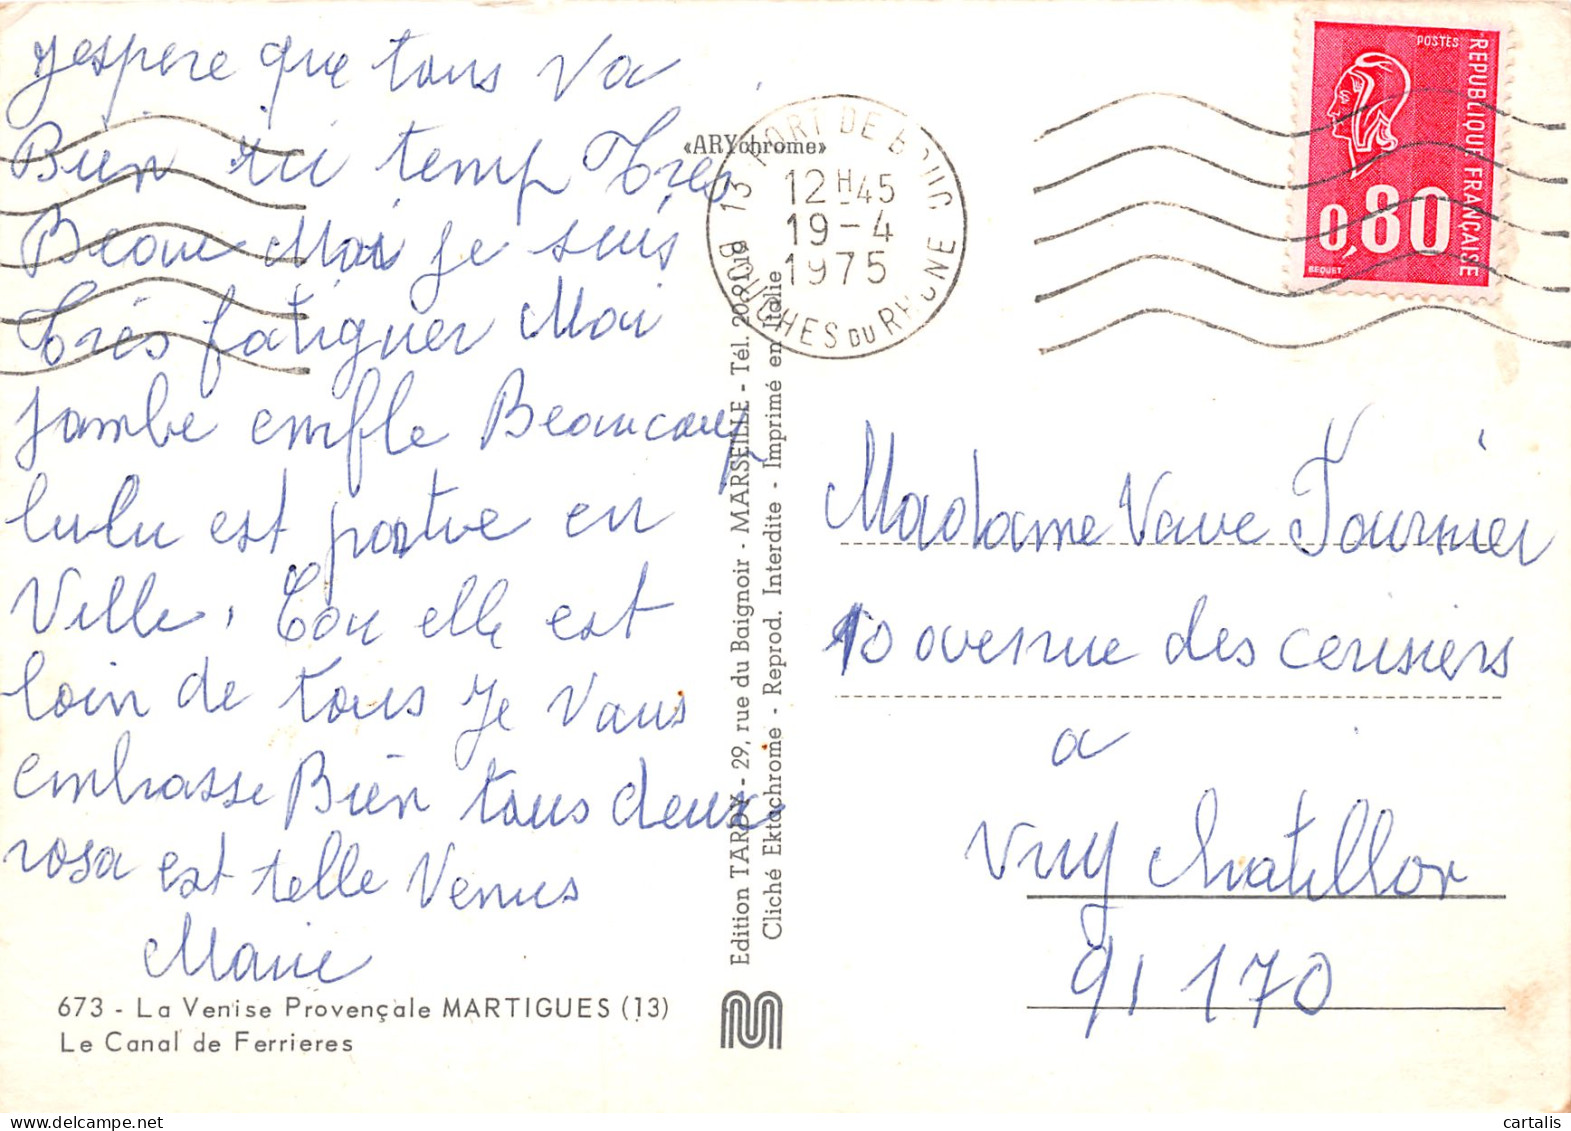 jespere que tous va
Bien ici temp Très
Beau Moi je suis
très fatiguer Moi
jambe emfle Beaucoup
lulu est partve en
Ville. Cou elle est
loin de tous Je Vous
embrasse Bien tous deux
rosa est telle Venus
Marie
673 - La Venise Provençale MARTIGUES (13)
Le Canal de Ferrieres
«ARYchrome»
Edition TARDY - 29, rue du Baignoir - MARSEILLE - Tél. 20
Cliché Ektachrome - Reprod. Interdite - Imprimé en Italie
13 PORT DE BOUC
12H45
19-4
1975
BOUCHES DU RHONE
POSTES
REPUBLIQUE FRANÇAISE
0,80
BEQUET
Madame Vave Fournier
10 avenue des cerisiers
a
Viry chatillon
91170
cartalis